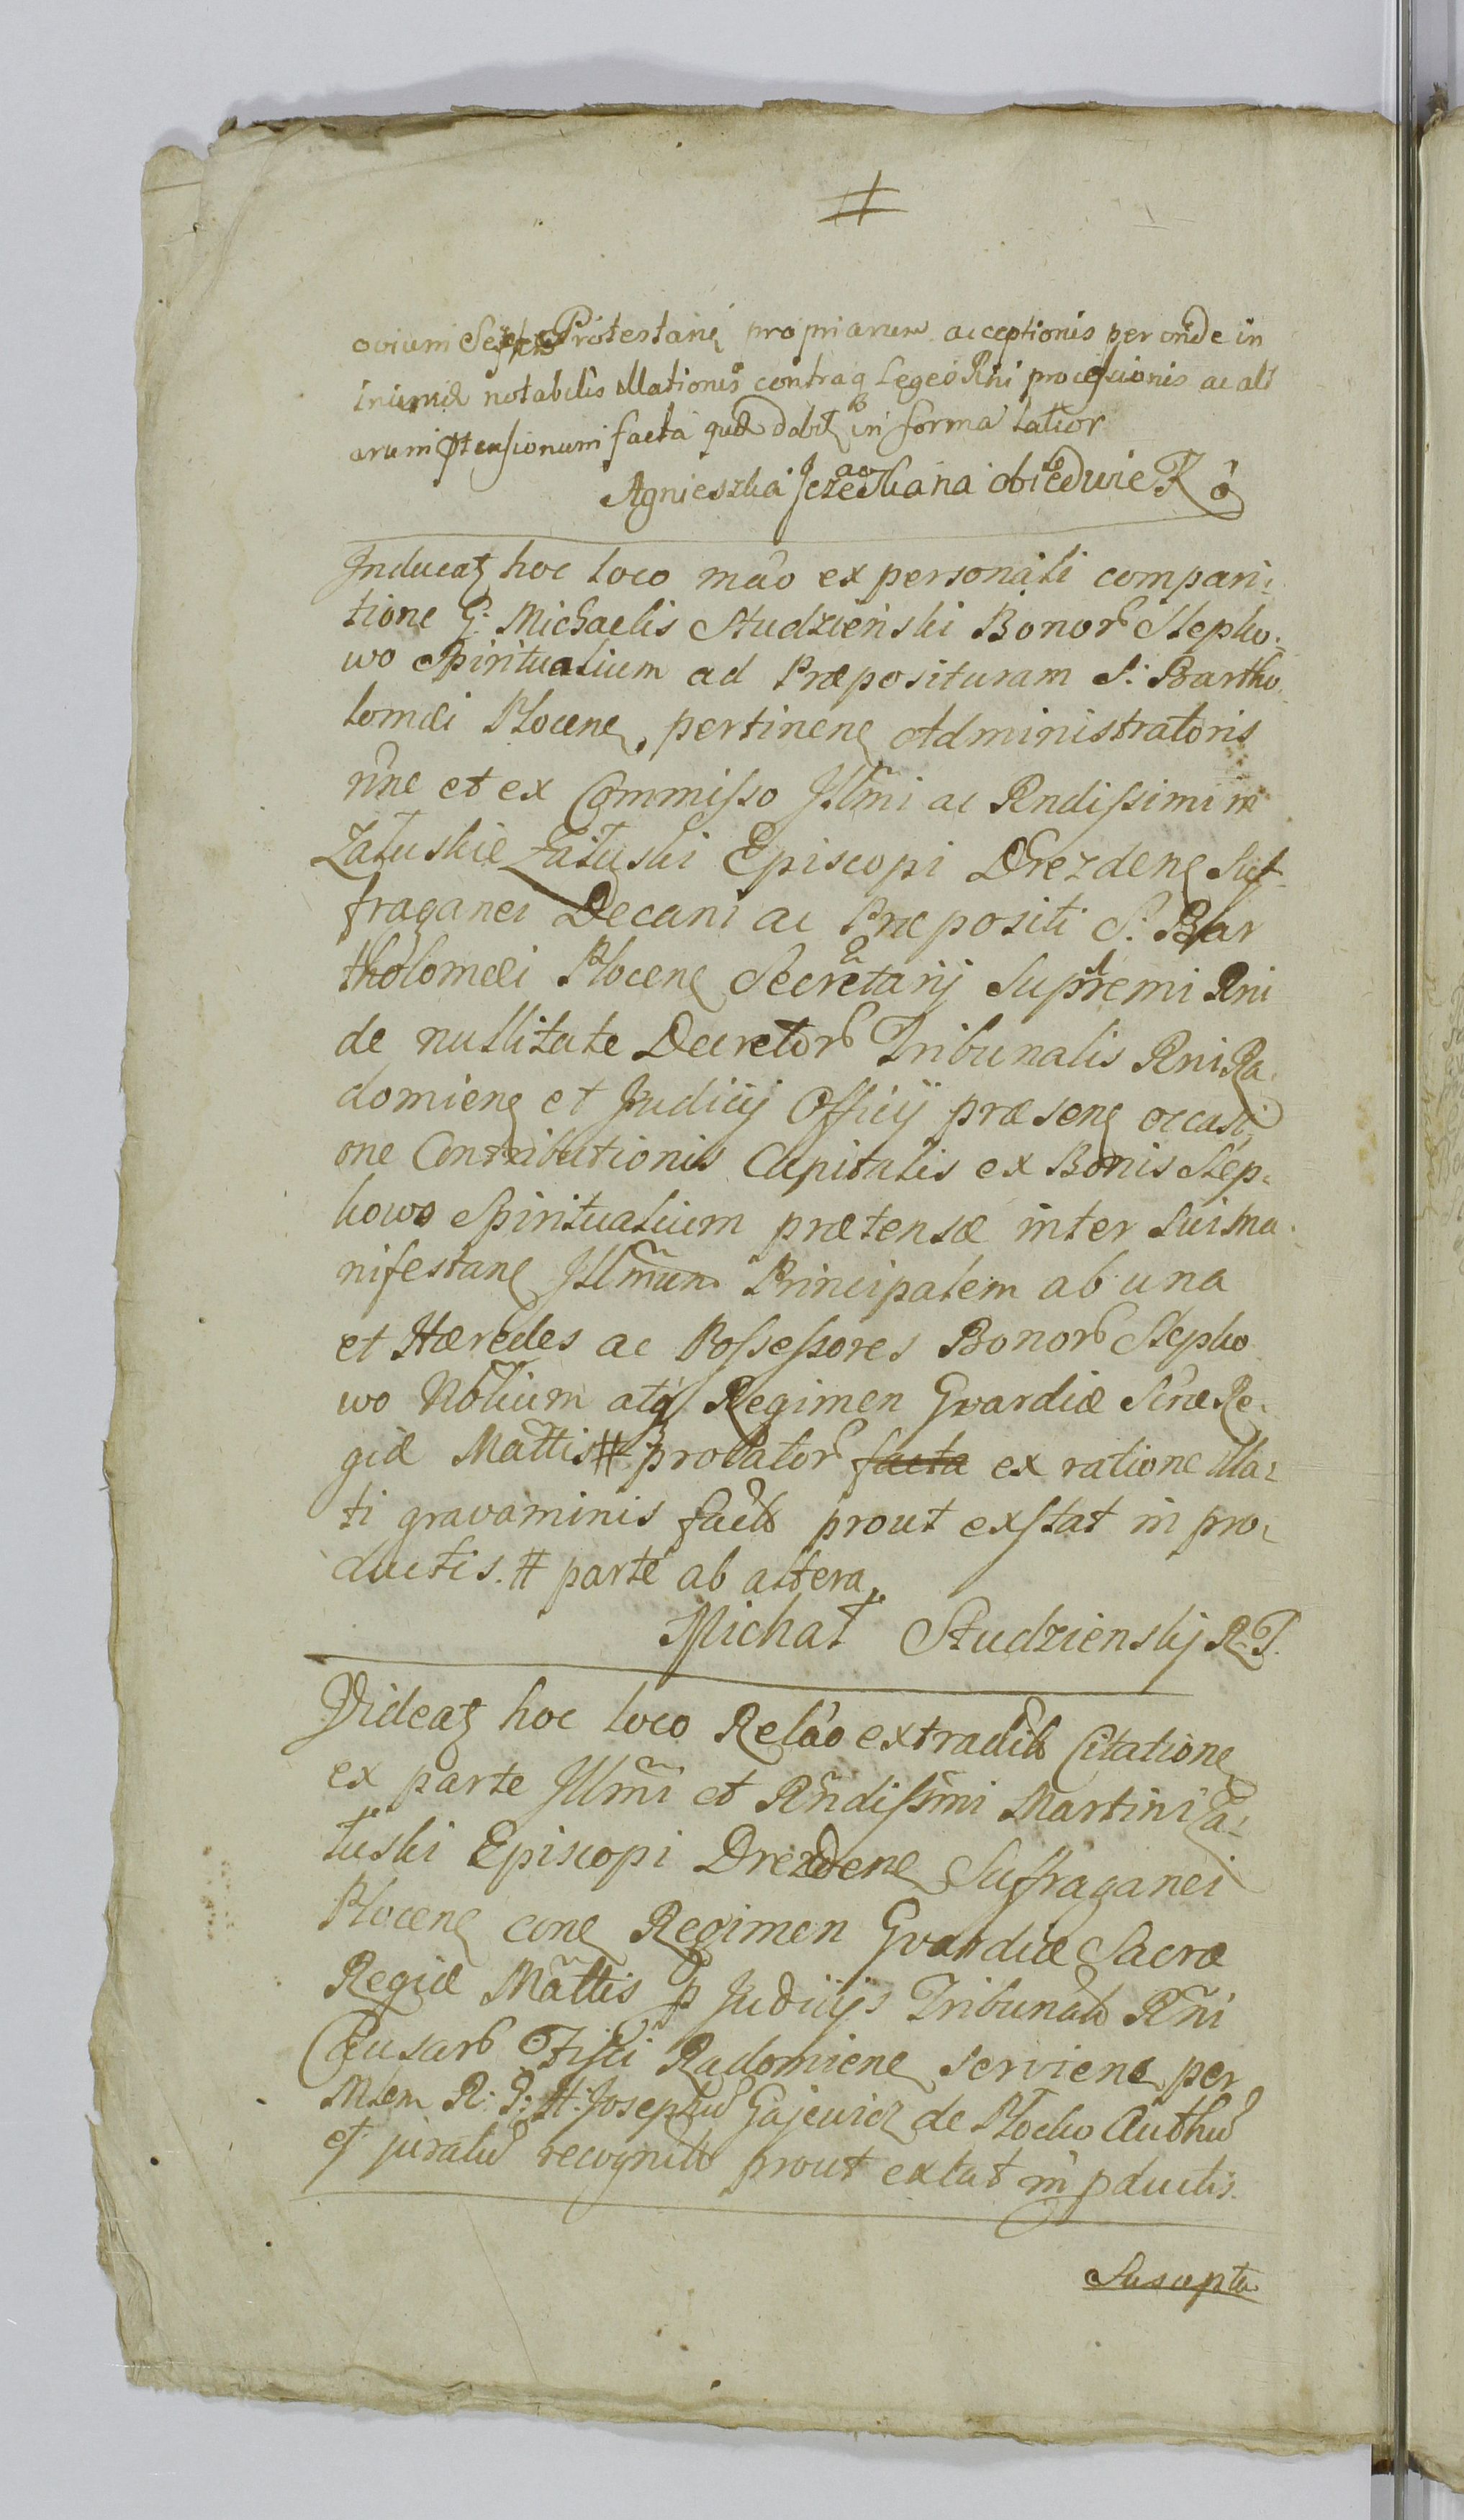 #
ovium Septem Protestane propriarum acceptionis per onde in
iniuriæ notabilis illationis contraq Leges Rni processionis ac ali
arum ptensionum facta quæ dabit in forma latior
Agnieszka Jezewskana obiedwie R o
Inducatz hoc loco mão ex personali compari:
tione G: Michaelis Studzieński Bonor Slepko:
wo Spiritualium ad Præposituram S: Bartho
lomæi Plocene, pertinene Administratoris
nne et ex Commisso Illmi ac Rndissimi M
Załuskie Załuski Episcopi Drezdene Suf
fraganei Decani ac Præpositi S: Bar
tholomæi Plocene Secretarij Supremi Rni
de nullitate Decretor Tribunalis Rni Ra
domiene et Judicij Officij præsene occasi
one Contributionis Capitalis ex Bonis Slep:
kowo Spiritualium prætensæ inter sui ma
nifestane Illmum Principalem ab una
et Hæredes ac Possessores Bonor Slepko
wo Nobilium atq Regimen Gvardiæ Sacræ Re:
giæ Mattis # probator facta ex ratione illa:
ti gravaminis fact prout exstat in pro:
ductis. # parte ab altera.
Michał Studzienskij R.P.
Videatz hoc loco Relão extradit Citatione
ex parte Illmi et Rndissimi Martini Za:
łuski Episcopi Drezdene Suffraganei
Plocene cone Regimen Gvardiæ Sacræ
Regiæ Mattis p Judicijs Tribunal Rni
Causar Fisci Radomiene serviene per
Mlem R: G: H: Joseph Gajewicz de Plocko Auth
et jurat recognit prout extat in pductis.
Suscepta